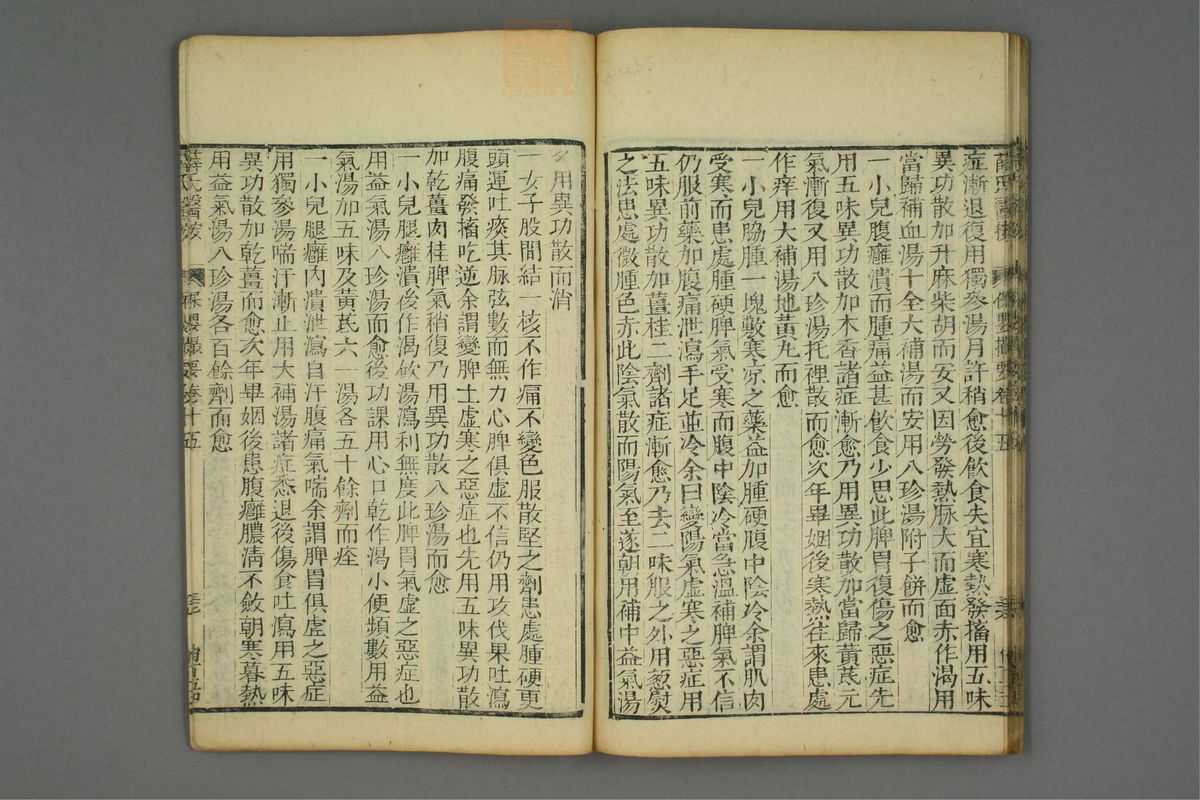 薛氏醫按 保嬰撮要卷十五
症漸退復用獨參湯月許稍愈後飲食失宜寒熱發搐用五味
異功散加升麻柴胡而安又因勞發熱脉大而虛面赤作渴用
當歸補血湯十全大補湯而安用八珍湯附子餅而愈
一小兒腹癰潰而腫痛益甚飲食少思此脾胃復傷之惡症先
用五味異功散加木香諸症漸愈乃用異功散加當歸黃芪元
氣漸復又用八珍湯托裡散而愈次年畢姻後寒熱往來患處
作痒用大補湯地黃丸而愈
一小兒脇腫一塊敷寒凉之藥益加腫硬腹中陰冷余謂肌肉
受寒而患處腫硬脾氣受寒而腹中陰冷當急溫補脾氣不信
仍服前藥加腹痛泄瀉手足並冷余曰變陽氣虛寒之惡症用
五味異功散加薑桂二劑諸症漸愈乃去二味服之外用葱熨
之法患處微腫色赤此陰氣散而陽氣至遂朝用補中益氣湯
夕用異功散而消
一女子股間結一核不作痛不變色服散堅之劑患處腫硬更
頭運吐痰其脉弦數而無力心脾俱虛不信仍用攻伐果吐瀉
腹痛發搐吃逆余謂變脾土虛寒之惡症也先用五味異功散
加乾薑肉桂脾氣稍復乃用異功散八珍湯而愈
一小兒腿癰潰後作渴飲湯瀉利無度此脾胃氣虛之惡症也
用益氣湯八珍湯而愈後功課用心口乾作渴小便頻數用益
氣湯加五味及黃芪六一湯各五十餘劑而痊
一小兒腿癰內潰泄瀉自汗腹痛氣喘余謂脾胃俱虛之惡症
用獨參湯喘汗漸止用大補湯諸症悉退後傷食吐瀉用五味
異功散加乾薑而愈次年畢姻後患腹癰膿淸不斂朝寒暮熱
用益氣湯八珍湯各百餘劑而愈
薛氏醫按 保嬰撮要卷十五